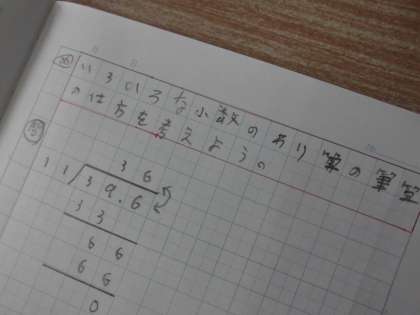 いろいろな小数のわり算の筆算
の仕方を考えよう。
36
11)39.6
33
66
66
0